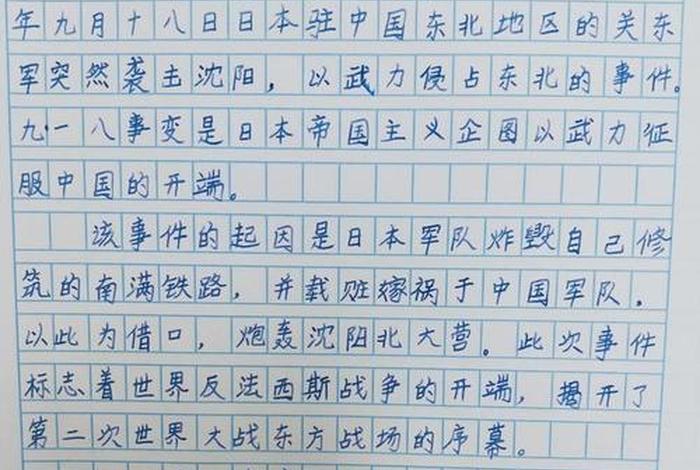 年九月十八日日本驻中国东北地区的关东
军突然袭主沈阳，以武力侵占东北的事件。
九·一八事变是日本帝国主义企图以武力征
服中国的开端。
该事件的起因是日本军队炸毁自己修
筑的南满铁路，并载赃嫁祸于中国军队，
以此为借口，炮轰沈阳北大营。此次事件
标志着世界反法西斯战争的开端，揭开了
第二次世界大战东方战场的序幕。